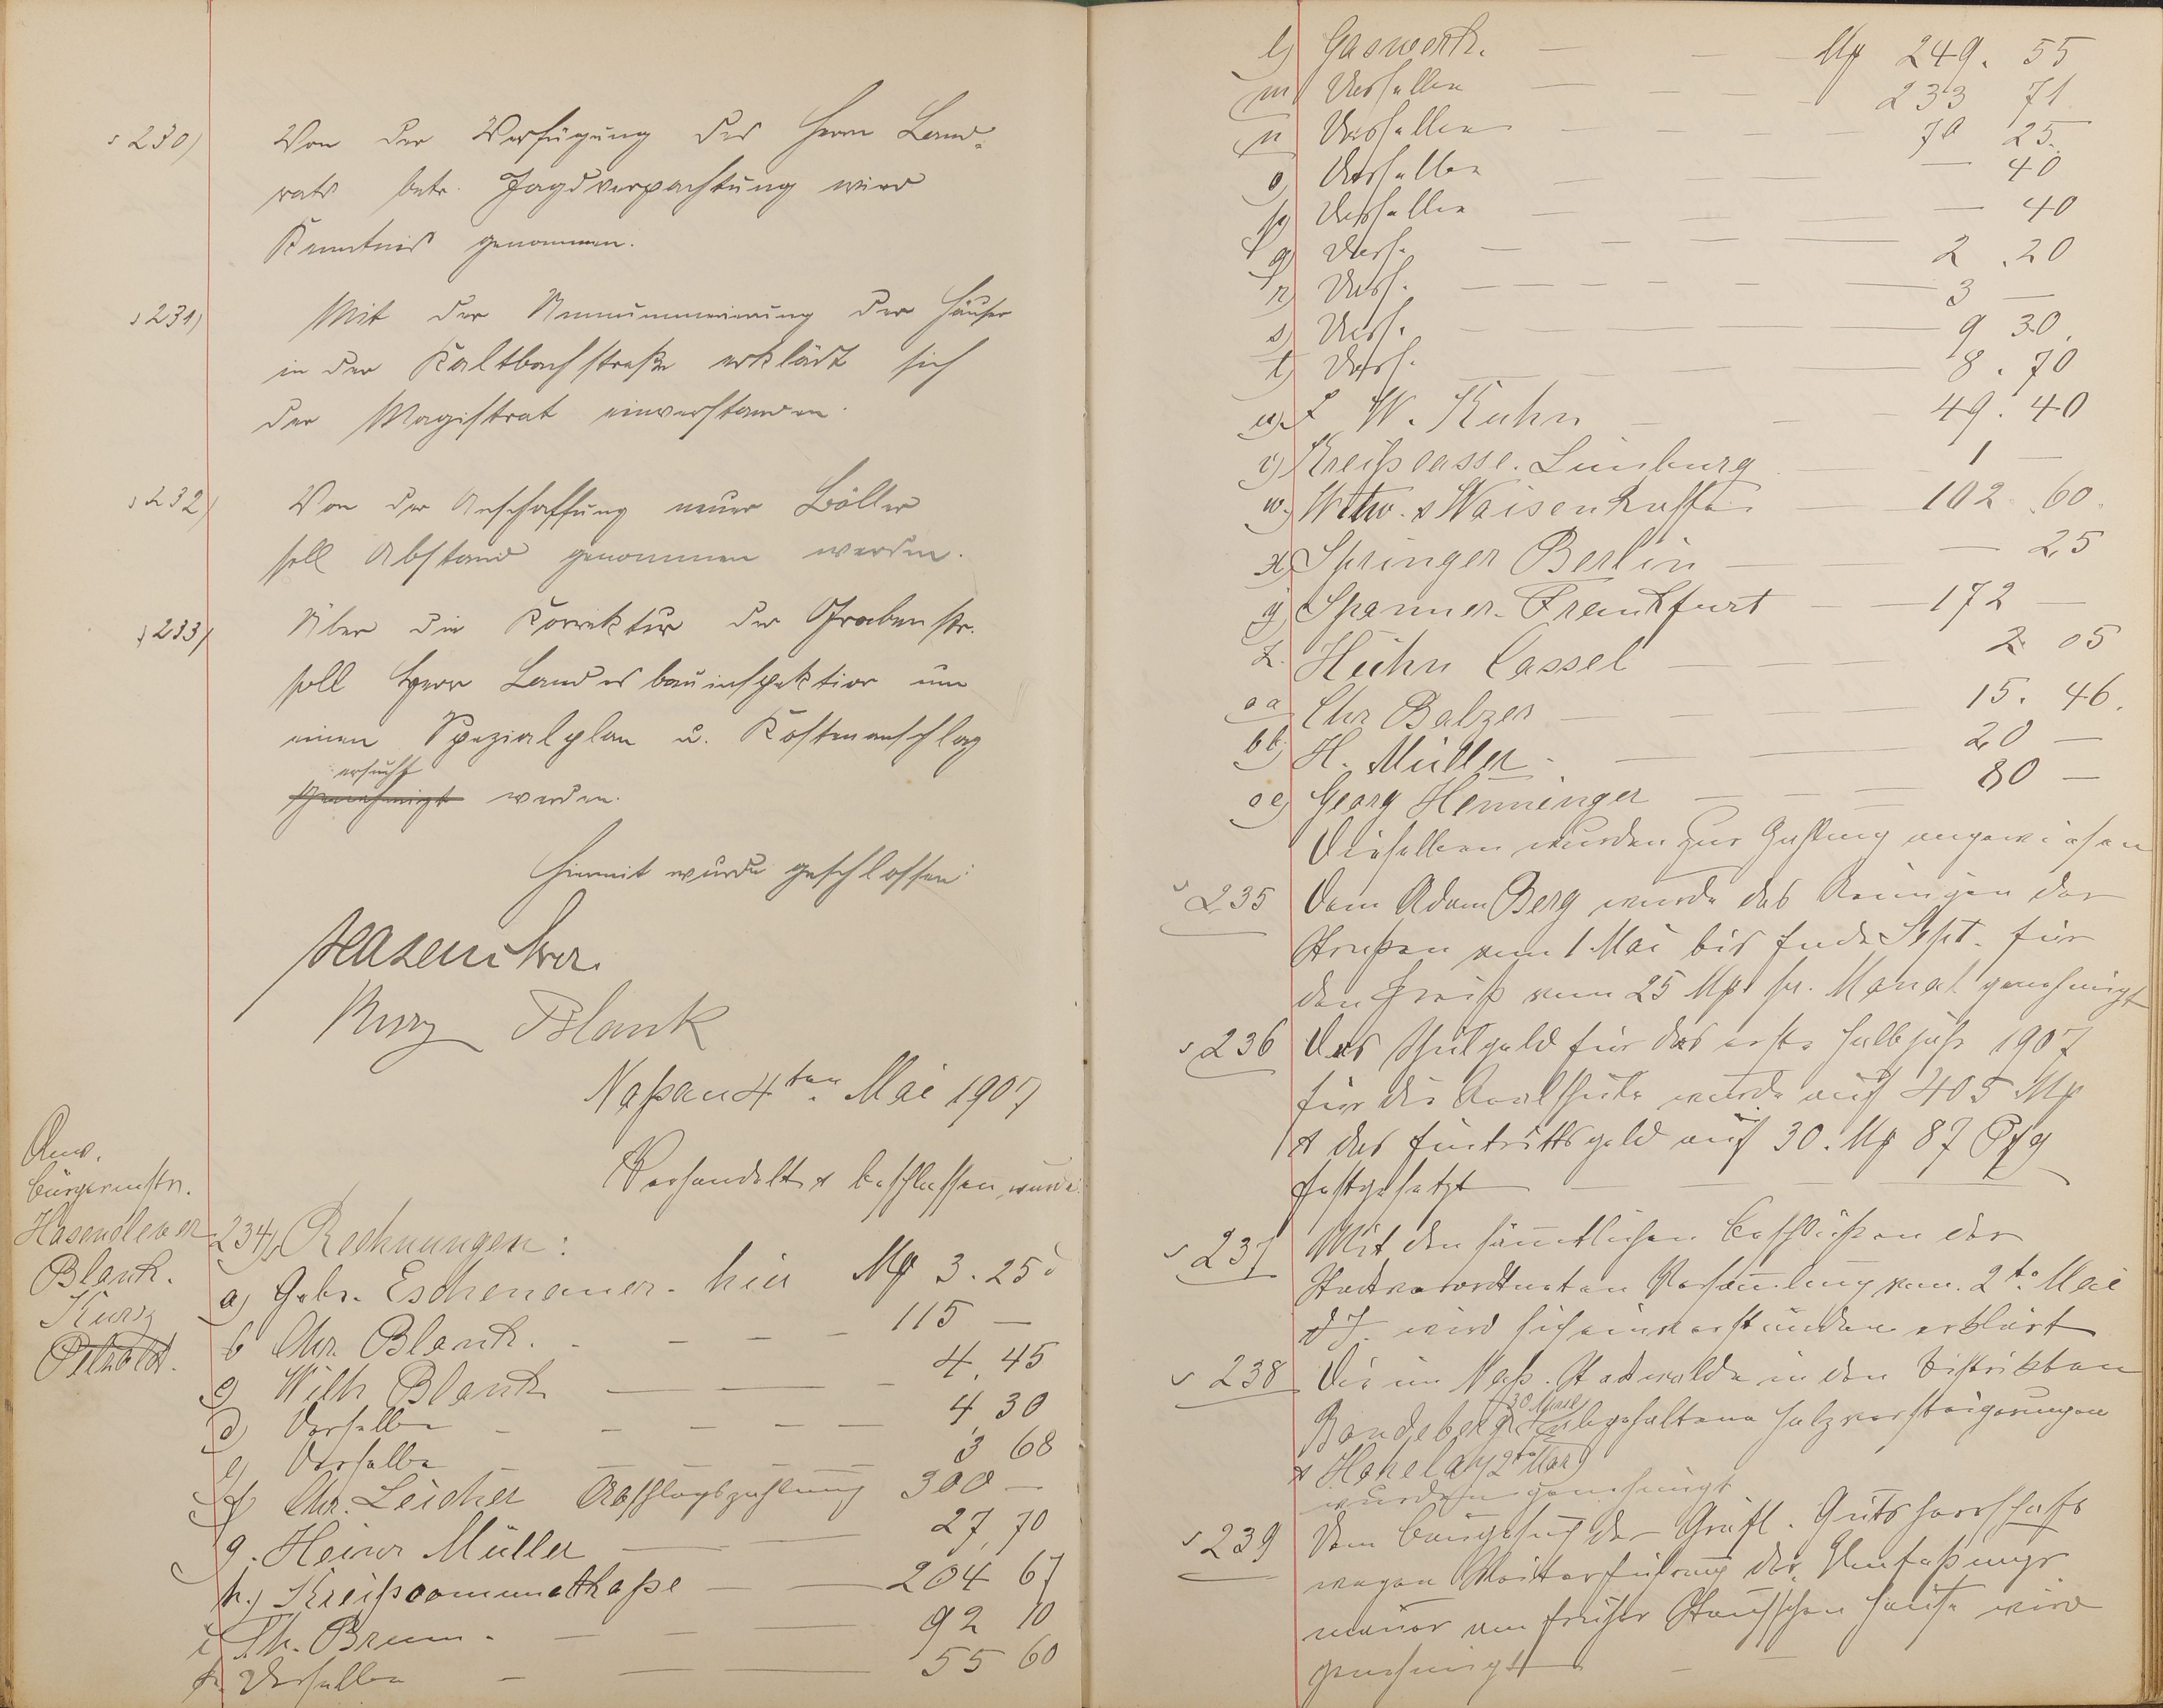 § 230) Von der Verfügung des Herrn Land-
rats betr. Jagdverpachtung wird
Kenntnis genommen.
§ 231) Mit der Umnummerierung der Häuser
in der Kaltbachstraße erklärt sich
der Magistrat einverstanden.
§ 232) Von der Anschaffung neuer Böller
soll Abstand genommen werden.
§ 233) Über die Korrektur der Grabenstr.
soll Herr Landesbauinspektior um
einen Spezialplan u. Kostenanschlag
ersucht
genehmigt werden.
Hiermit wurde geschlossen:
Hasenclever.
Kurz Blank
Naßau 4ten Mai 1907
Verhandelt & beschlossen wurde
Anw.
Bürgermstr.
Hasenclever
Blank.
Kurz
234) Rechnungen:
a) Gebr. Eschenauer. hier Mk 3.25
b Chr. Blank. - - - 115 —
c) Wilh Blank — — — 4.45
d) Derselbe - - - - 4 30
e) Derselbe — — — 3 68
f) Chr. Leicher Abschlagszahlung 300 —
g. Heinr Müller — — 27,70
h.) Kreißcommunalkaße — — 204 67
i Th. Brum. — — — 92 10
k. Derselbe — — — 55 60
l) Gaswerk. — — Mk 249. 55
m) Derselbe — — — 233 71
n) Derselbe — — — 70 25.
o) Derselbe — — — 40
p) Derselbe — — — 40
q) Ders. — — — 2.20
r) Ders. — — — 3 —
s) Ders. — — — 9 30.
t) Ders. — — — 8.70
u) F W. Kuhn — — 49.40
v) Kreißcasse. Limburg — 1 —
w.) Witw. & Waisenkasse — 102 60.
x) Springer Berlin — — 25
y) Spanner. Frankfurt — 172 —
z. Hühn Cassel — — — 2 05
aa Chr Balzer — — — 15. 46.
bb) H. Müller. — — — 20 —
cc) Georg Henninger — — — 80 —
Dieselben wurden zur Zahlung angewiesen
§ 235 Dem Adam Berg wurde das Reinigen der
Straßen vom 1 Mai bis Ende Sept. für
den Preiß vom 25 Mk pr. Monat genehmigt
§ 236 Das Schulgeld für das erste Halbjahr 1907
für die Realschule wurde auf 405 Mk
& das Eintrittsgeld auf 30. Mk 87 Pfg
festgesetzt —
§ 237 Mit den sämtlichen Beschlüßen der
Stadtverordneten Versamlung vom. 2te. Mai
d J. wird sich einverstanden erklärt
§ 238 Die im Naß. Stadtwalde in den Distrikten
abgehaltene Holzversteigerungen
& Hohelay 2te Mai)
wurden genehmigt
§ 239 Dem Baugesuch der Gräfl. Gutsherrschaft
wegen Weiterführung der Einfaßungs
mauer am früher Hause wird
genehmigt — —